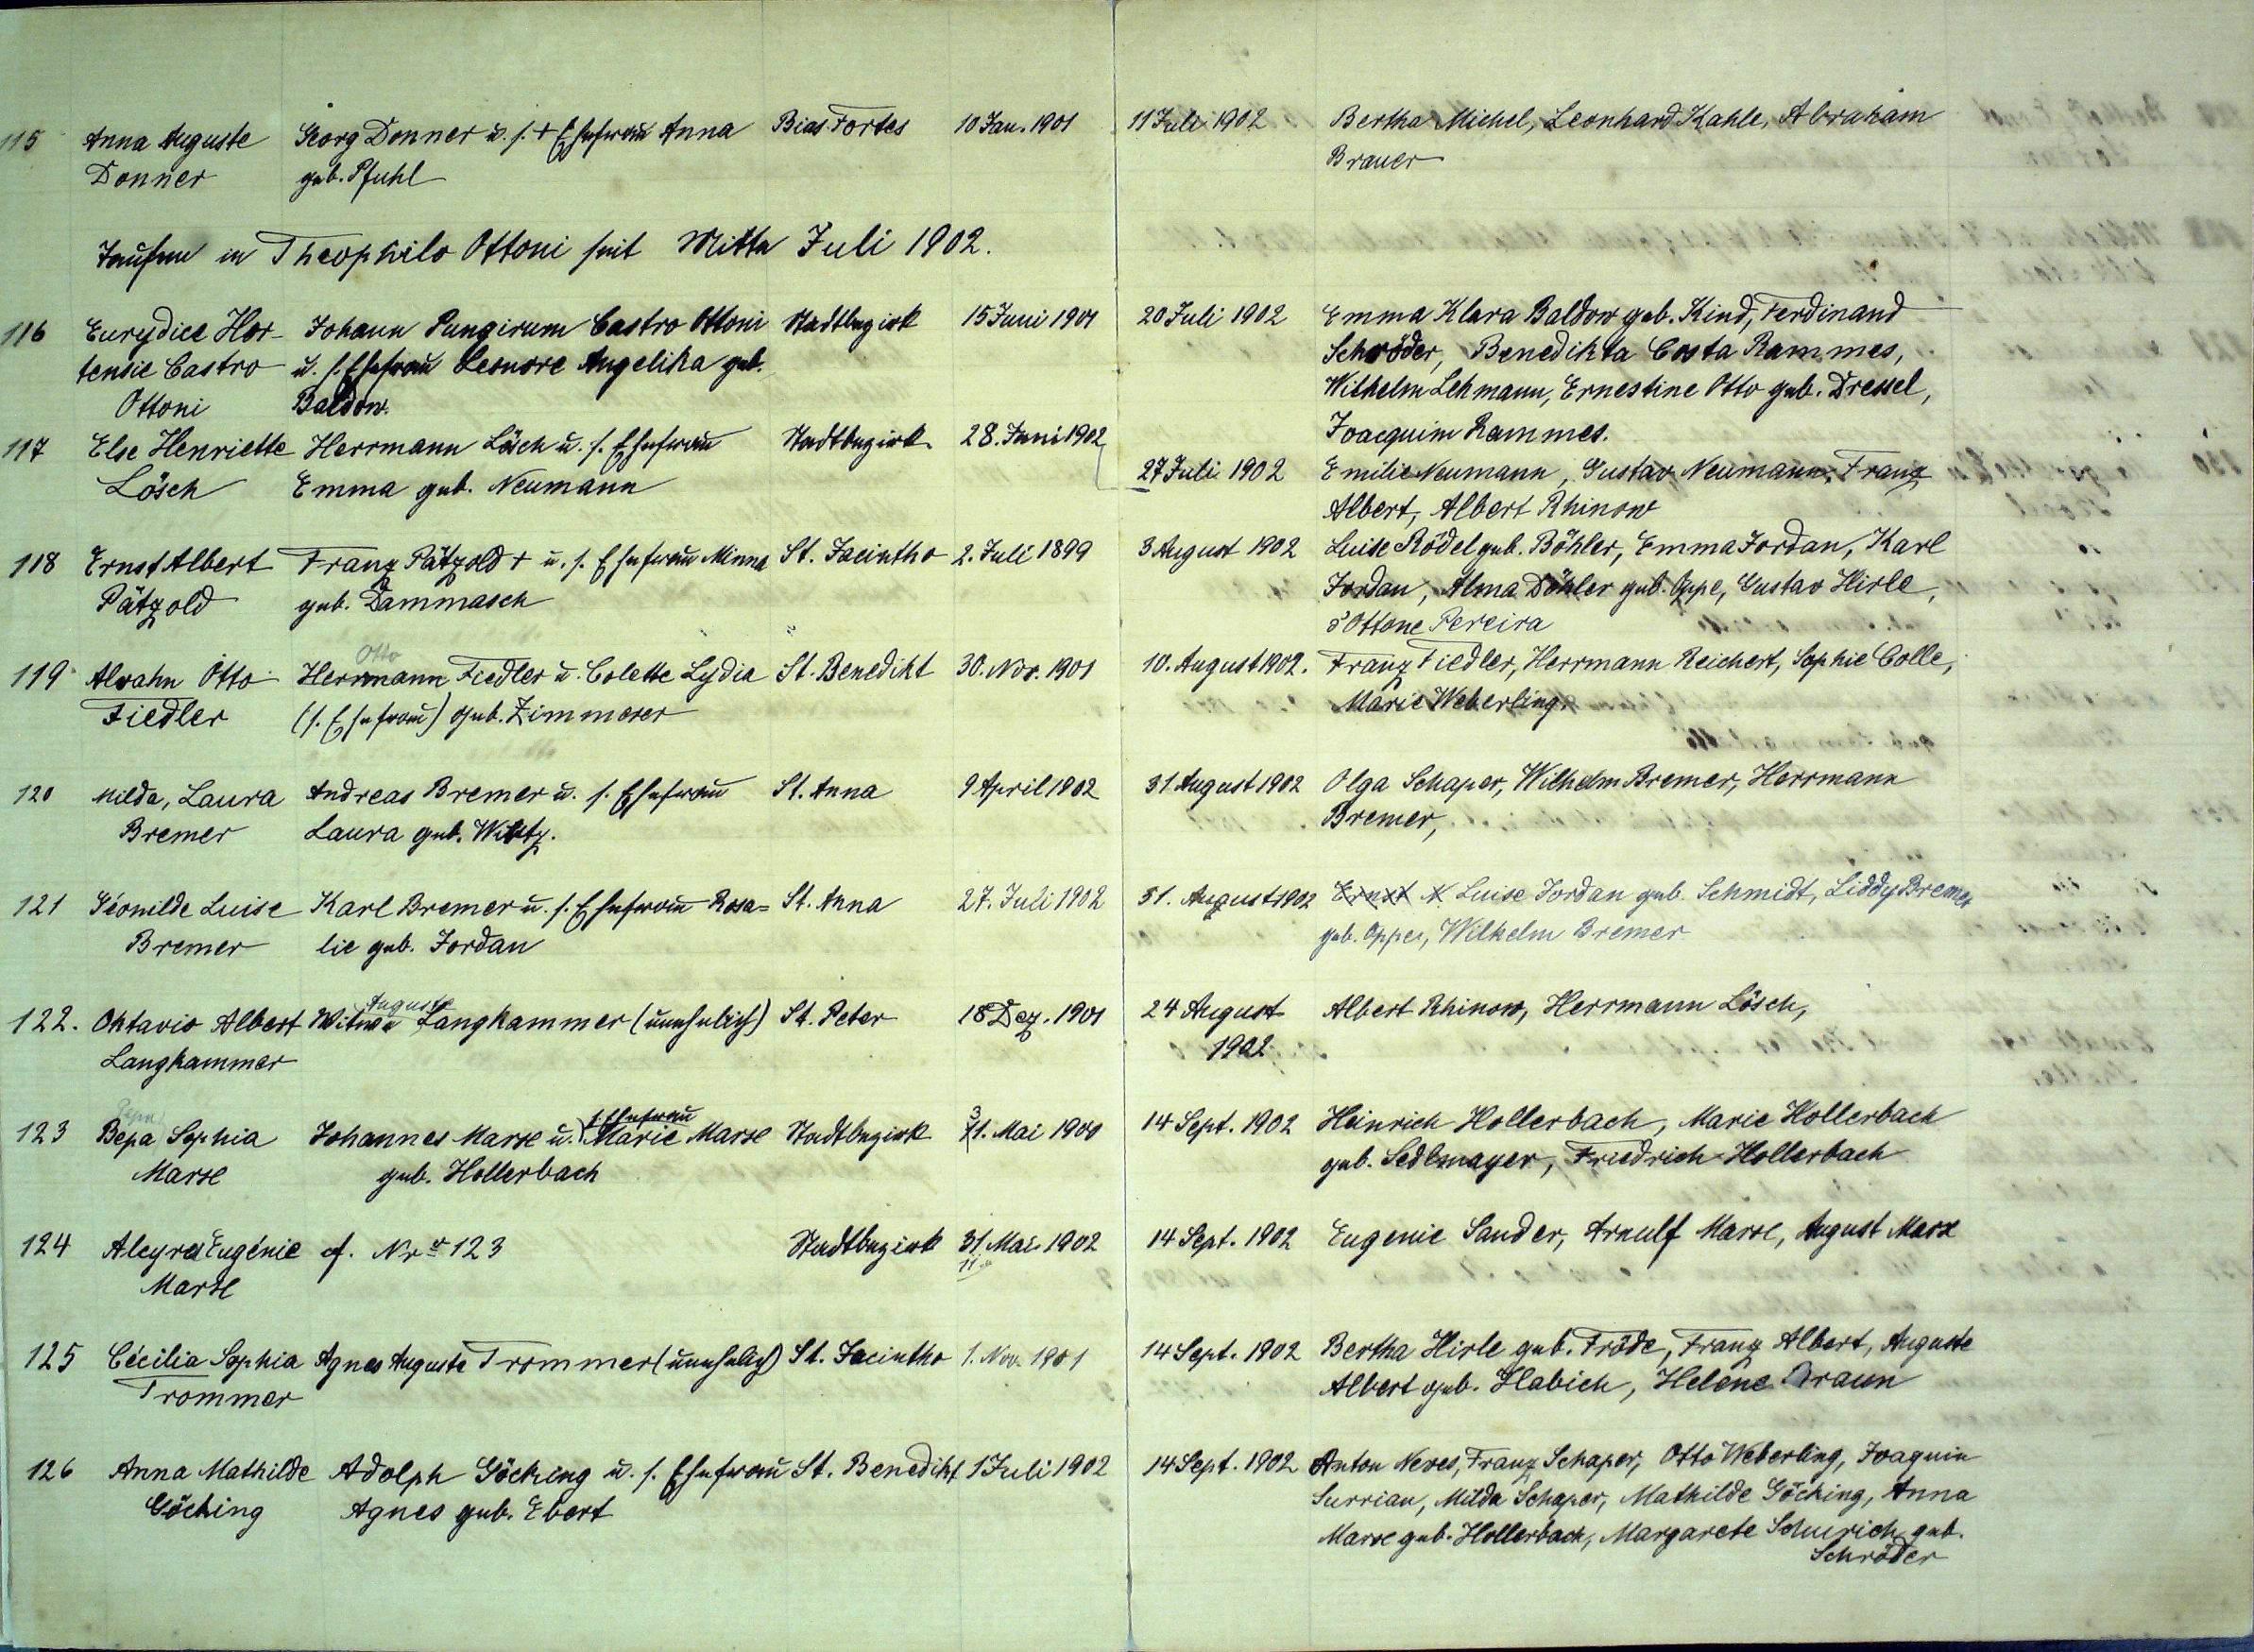 115 Anna Auguste Georg Donner u. s. + Ehefrau Anna Bias Fortes 10 Jan. 1901 11 Juli 1902 Bertha Michel, Leonhard Kahle, Abraham
Donner geb. Pfuhl Brauer
Taufen in Theophilo Ottoni seit Mitte Juli 1902.
116 Eurydice Hor- Johann Pungirum Castro Ottoni Stadtbezirk 15 Juni 1901 20 Juli 1902 Emma Klara Baldow geb. Kind, Ferdinand
tensie Castro u. s. Ehefrau Leonore Angelika geb. Schröder, Benedikta Costa Rammes,
Ottoni Baldow. Wilhelm Lehmann, Ernestine Otto geb. Dressel,
Joacquim Rammes.
117 Else Henriette Herrmann Lösch u. s. Ehefrau Stadtbezirk 28. Juni 1902 27 Juli 1902 Emilie Neumann, Gustav Neumann, Franz
Lösch Emma geb. Neumann Albert, Albert Rhinow
118 Ernst Albert Franz Pätzold + u. s. Ehefrau Minna St. Jacintho 2. Juli 1899 3 August 1902 Luise Rödel geb. Böhler, Emma Jordan, Karl
Pätzold geb. Dammasch Jordan, Alma Döhler geb. Oppe, Gustav Hirle,
Ottone Pereira
Otto
119 Alvahn Otto Herrmann Fiedler u. Colette Lydia St. Benedikt 30. Nov. 1901 10. August 1902. Franz Fiedler, Herrmann Reichert, Sophie Colle,
Fiedler (s. Ehefrau) geb. Zimmerer Marie Weberling.
120 Milda, Laura Andreas Bremer u. s. Ehefrau St. Anna 9 April 1902 31 August 1902 Olga Schaper, Wilhelm Bremer, Herrmann
Bremer Laura geb. Wiltz. Bremer,
121 Léonilde Luise Karl Bremer u. s. Ehefrau Rosa= St. Anna 27. Juli 1902 31. August 1902 Ernst Luise Jordan geb. Schmidt, Liddy Bremer
Bremer lie geb. Jordan geb. Oppe, Wilhelm Bremer
Auguste
122. Oktavio Albert Witwe Langkammer (unehelich) St. Peter 18 Dez. 1901 24 August Albert Rhinow, Herrmann Lösch,
Langkammer 1902
Pepa s. Ehefrau 3
123 Bepa Sophia Johannes Marxe u. Marie Marxe Stadtbezirk 1. Mai 1900 14 Sept. 1902 Heinrich Hollerbach, Marie Hollerbach
Marxe geb. Hollerbach geb. Sedlmayer, Friedrich Hollerbach
124 Alcyra Eugénie cf. Nro 123 Stadtbezirk 31 Mai 1902 14 Sept. 1902 Eugenie Sander, Arnulf Marxe, August Marxe
Marxe 11
125 Cécilia Sophia Agnes Auguste Trommer (unehelich) St. Jacintho 1. Nov. 1901 14 Sept. 1902 Bertha Hirle geb. Fröde, Franz Albert, Auguste
Trommer Albert geb. Habich, Helene Braun
126 Anna Mathilde Adolph Göcking u. s. Ehefrau St. Benedikt 1 Juli 1902 14 Sept. 1902 Anton Neves, Franz Schaper, Otto Weberling, Joaquin
Göcking Agnes geb. Ebert Surrian, Milda Schaper, Mathilde Göcking, Anna
Marxe geb. Hollerbach, Margarete Schurich geb.
Schröder